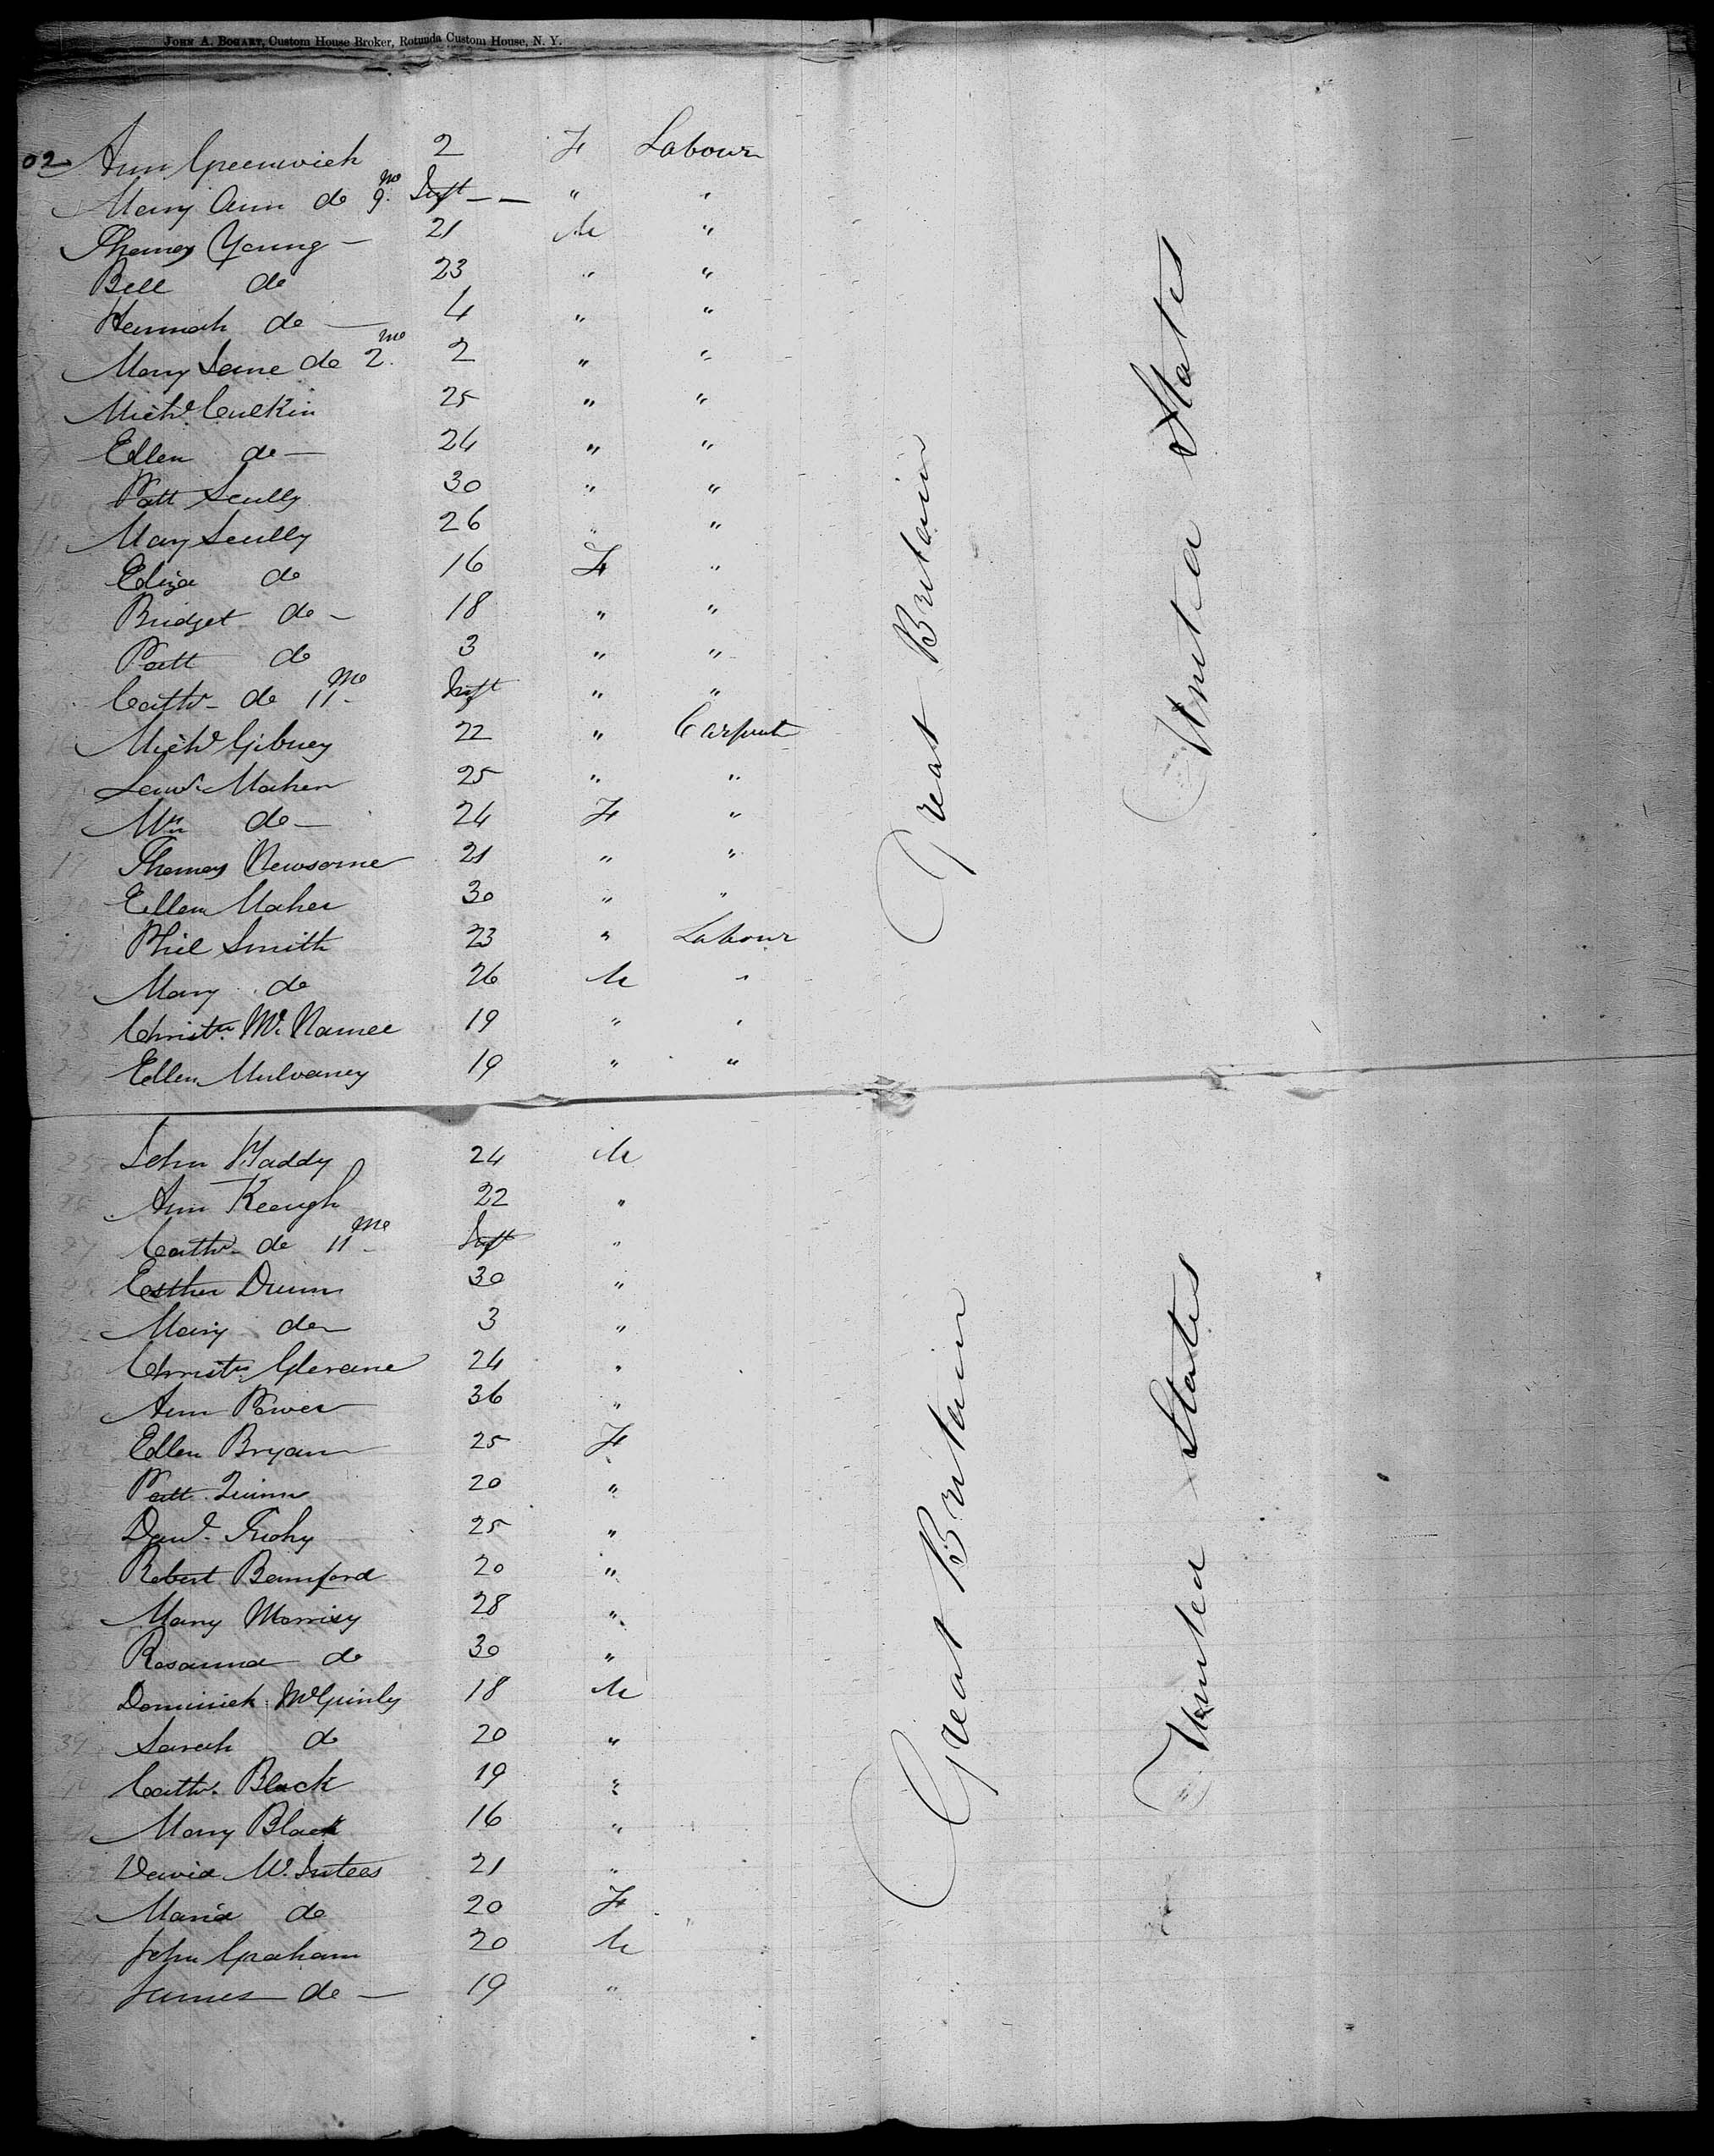 JOHN A. BOGART, Custom House Broker, Rotunda Custom House, N. Y.
02 Ann Greenwich 2 F Labour
Mary Ann do 9 mo Inft — — " "
Thomas Young — 21 M "
Bell do 23 " "
Hannah do — 4 " "
Mary Jane do 2 mo 2 " "
Michl Culkin 25 " "
Ellen do — 24 " "
10 Patt Scully 30 " "
11 Mary Scully 26 " "
Eliza do 16 F "
Bridget do — 18 " "
Patt do 3 " "
Cathr do 11 mo Inft " "
Michl Gibney 22 " Carpent
Maher 25 " "
do — 24 F "
19 Thomas Newsome 21 " "
20 Ellen Maher 30 " "
21 Phil Smith 23 " Labour
22 Mary do 26 M "
23 Christr Mc Namee 19 " "
Ellen Mulvaney 19 " "
25 John Maddy 24 M
26 Ann Keough 22 "
27 Cathr do 11 mo Inft "
28 Esther Dunn 30 "
29 Mary do 3 "
30 Christr 24 "
31 Ann Power 36 "
32 Ellen Bryan 25 F
33 Patt Quinn 20 "
34 Danl 25 "
35 Robert Bamford 20 "
36 Mary Morrisy 28 "
Rosanna do 30 "
38 Dominick McGinly 18 M
39 Sarah do 20 "
40 Cathr Black 19 "
Mary Black 16 "
42 David Mc 21 "
Maria do 20 F
44 John Graham 20 M
45 James do — 19 "
Great Britain
United States
Great Britain
United States